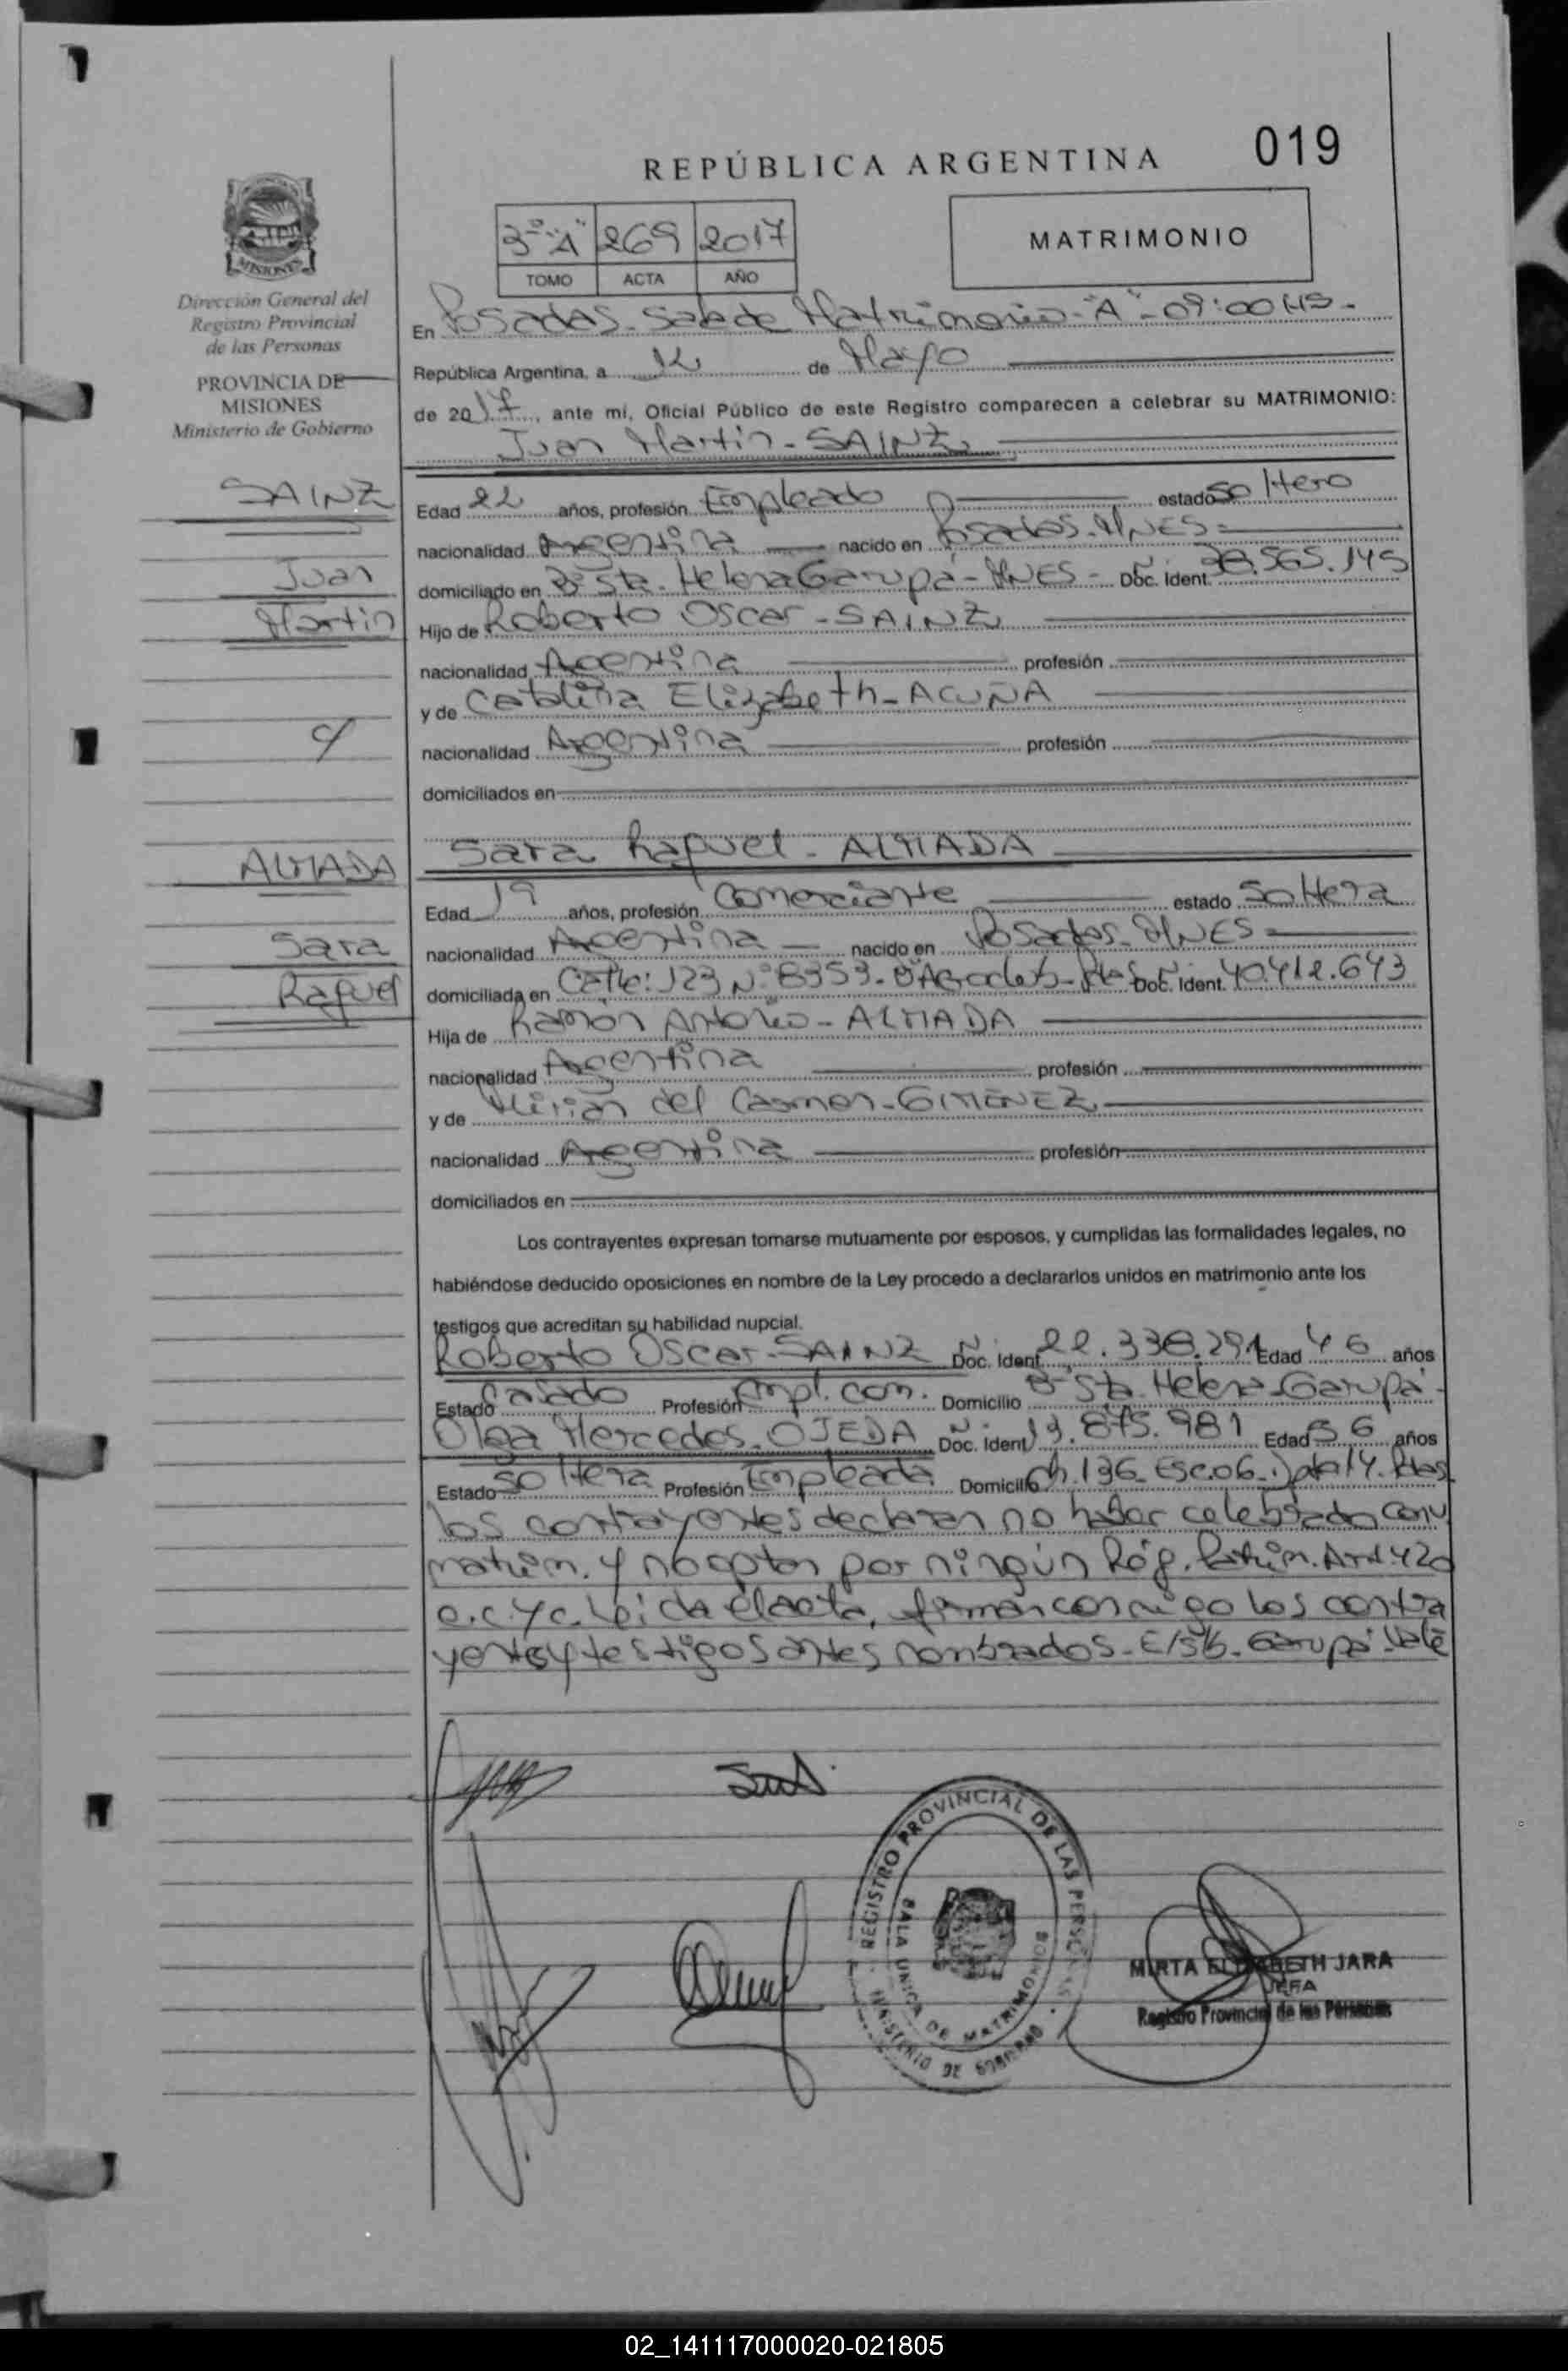 019
REPÚBLICA ARGENTINA
3º "A" 269 2017
TOMO ACTA AÑO
MATRIMONIO
MISIONES
Dirección General del
Registro Provincial
de las Personas
PROVINCIA DE
MISIONES
Ministerio de Gobierno
En Posadas - Sala de Matrimonio - "A" - 09:00 HS -
República Argentina, a 12 de Mayo
de 2017, ante mi, Oficial Público de este Registro comparecen a celebrar su MATRIMONIO:
Juan Martin - SAINZ
SAINZ
Juan
Martin
Edad 22 años, profesión Empleado estado Soltero
nacionalidad Argentina nacido en Posadas - MNES
domiciliado en Bº Sta. Helena Garupá - MNES - Doc. Ident. .565.145
Hijo de Roberto Oscar - SAINZ
nacionalidad Argentina profesión
y de Catalina Elizabeth - ACUÑA
nacionalidad Argentina profesión
domiciliados en
Sara Raquel - ALMADA
y
ALMADA
Sara
Raquel
Edad 19 años, profesión Comerciante estado Soltera
nacionalidad Argentina nacido en Posadas - MNES
domiciliada en Calle: 123 Nº 8353 - Doc. Ident. 40.412.643
Hija de Ramón Antonio - ALMADA
nacionalidad Argentina profesión
y de Mirian del Carmen - GIMENEZ
nacionalidad Argentina profesión
domiciliados en
Los contrayentes expresan tomarse mutuamente por esposos, y cumplidas las formalidades legales, no
habiéndose deducido oposiciones en nombre de la Ley procedo a declararlos unidos en matrimonio ante los
testigos que acreditan su habilidad nupcial.
Roberto Oscar - SAINZ Doc. Ident. 22.338.291 Edad 46 años
Estado Casado Profesión Empl. com. Domicilio Bº Sta. Helena - Garupá -
Olga Mercedes - OJEDA Doc. Ident. 13.875.981 Edad 56 años
Estado Soltera Profesión Empleada Domicilio Ch. 136 Esc. 06 - Dpto 14. Pdas
los contrayentes declaran no haber celebrado conv
matrim. y no optan por ningún Rég. Patrim. Art 420
e. c. y c. Leida el acta, firman conmigo los contra
yentes y testigos antes nombrados - E/S/b - Garupá Vale
REGISTRO PROVINCIAL DE LAS PERSONAS
SALA UNICA DE MATRIMONIOS
MINISTERIO DE GOBIERNO
MIRTA ELIZABETH JARA
JEFA
Registro Provincial de las Personas
02_141117000020-021805